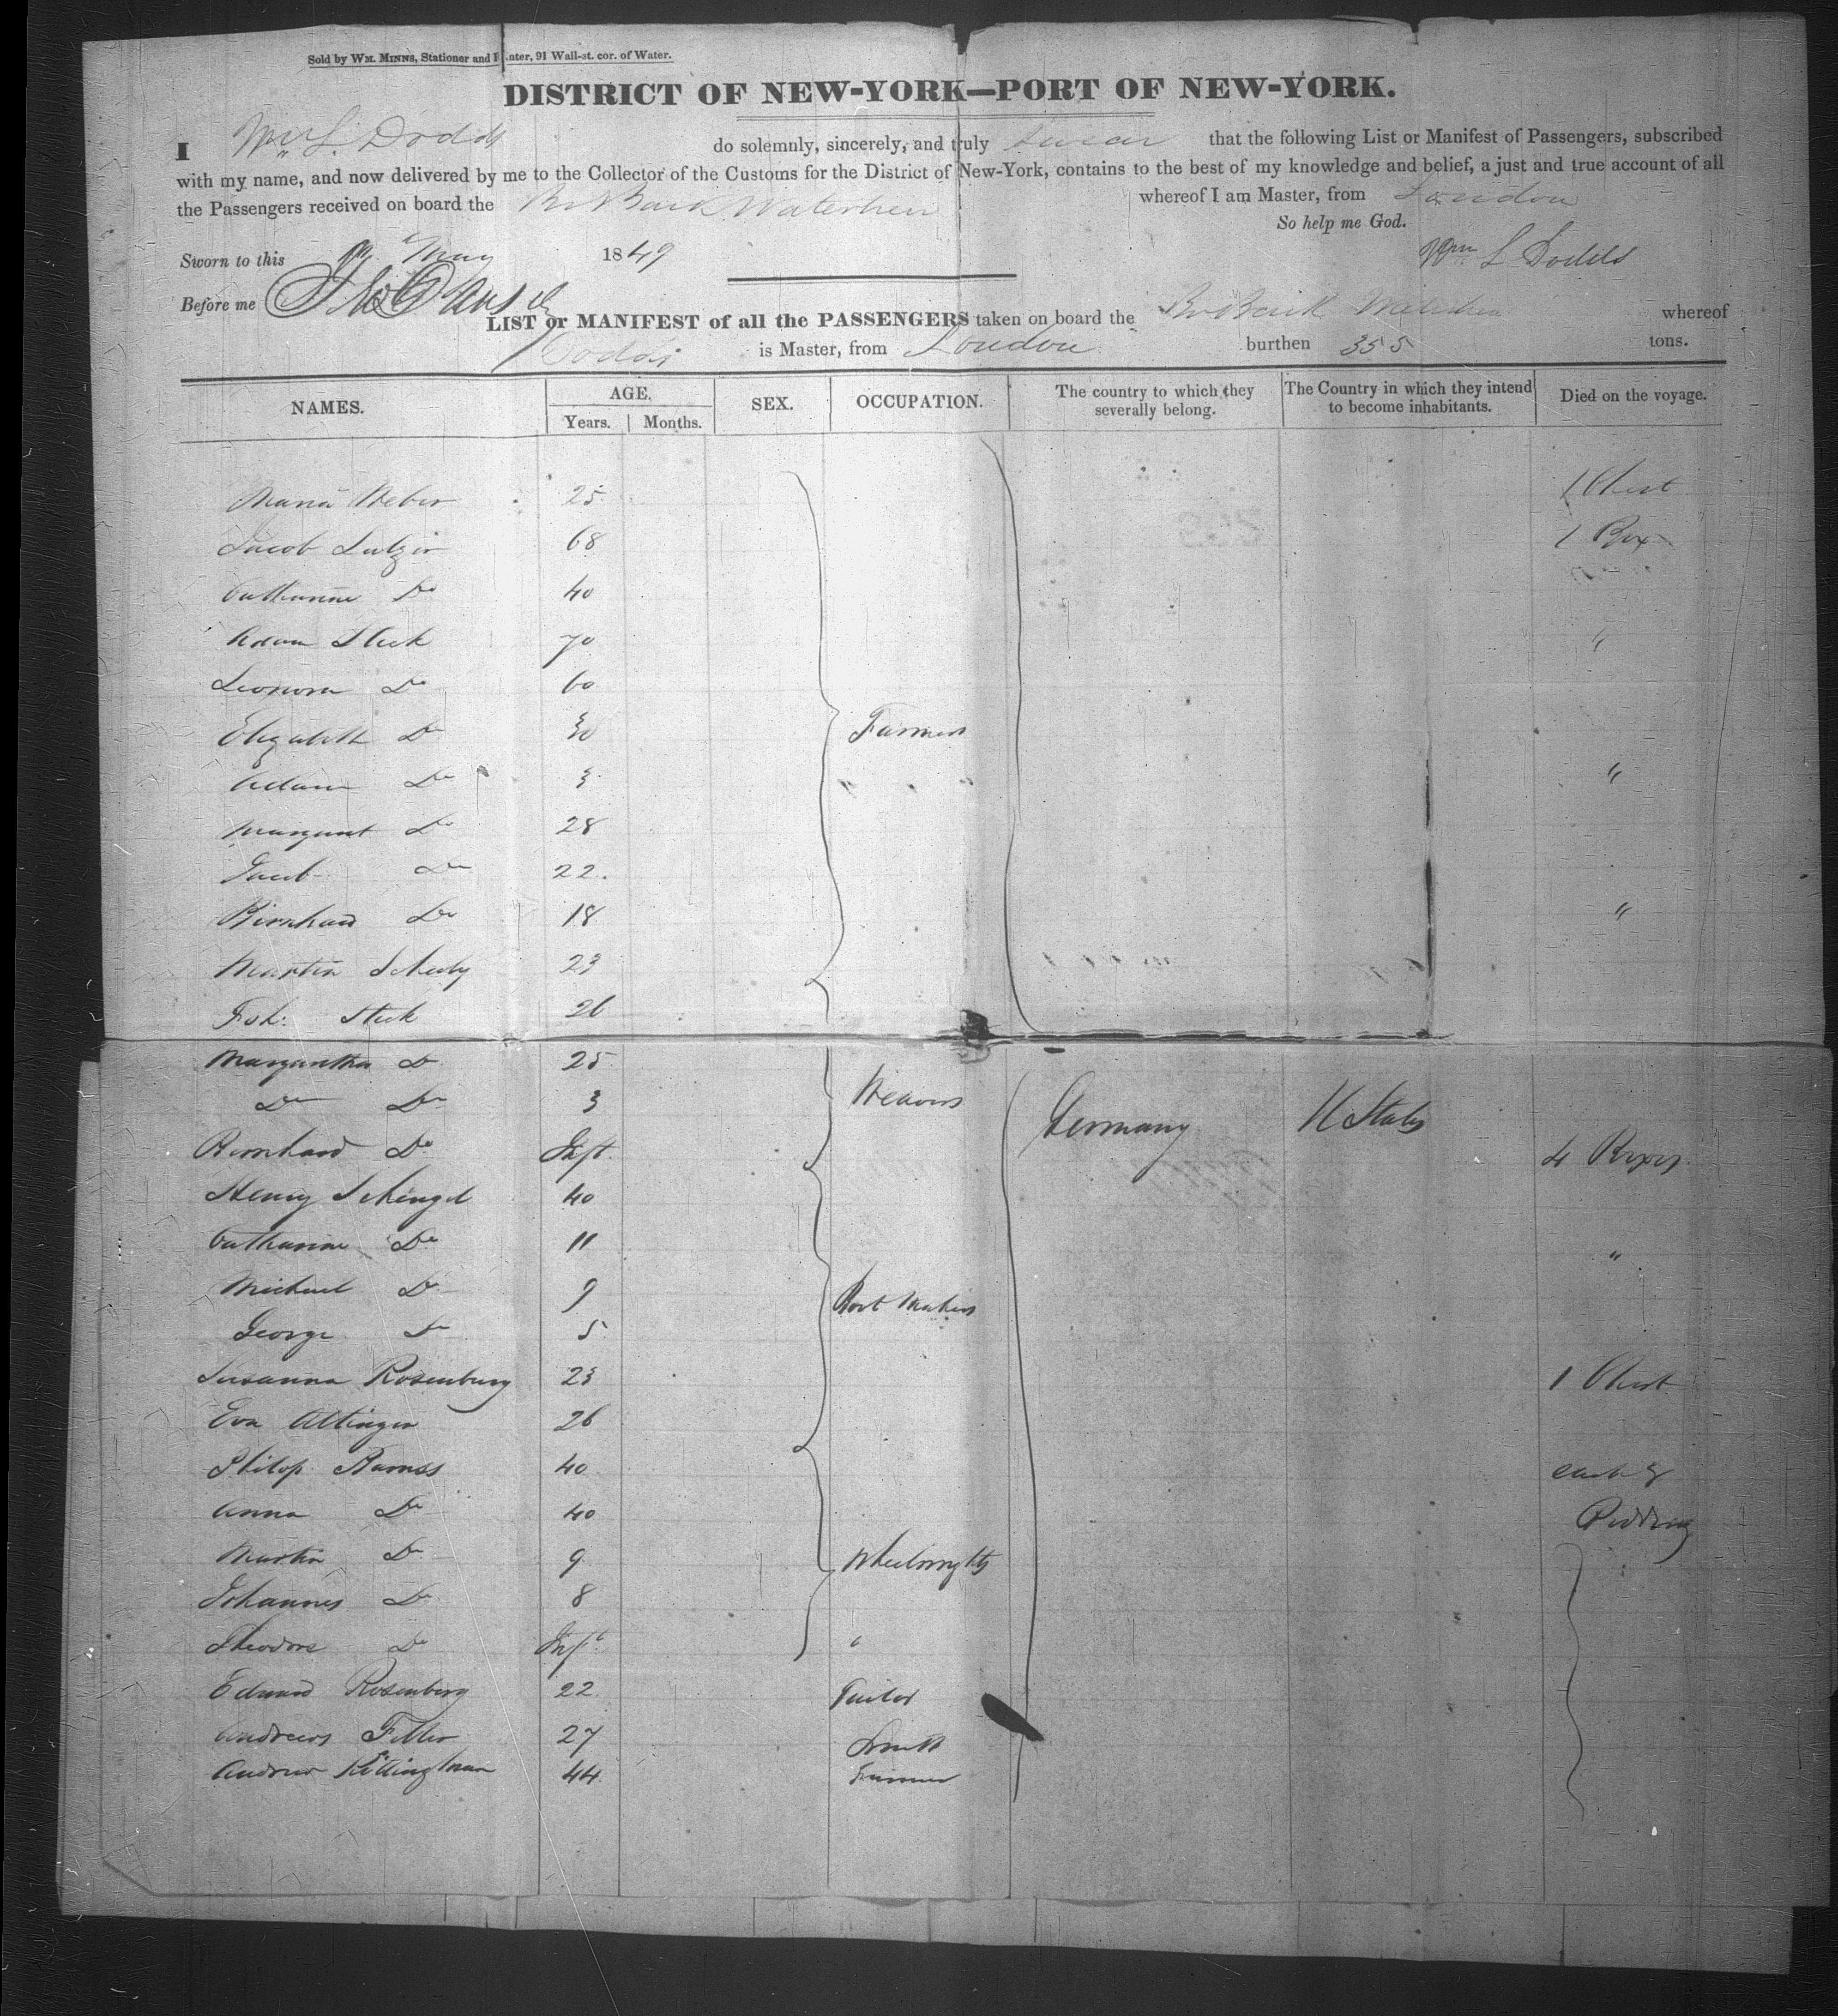 Sold by WM. MINNS, Stationer and Printer, 91 Wall-st. cor. of Water.
DISTRICT OF NEW-YORK—PORT OF NEW-YORK.
I Wm L. Dodds do solemnly, sincerely, and truly swear that the following List or Manifest of Passengers, subscribed
with my name, and now delivered by me to the Collector of the Customs for the District of New-York, contains to the best of my knowledge and belief, a just and true account of all
the Passengers received on board the Br Bark Waterhen whereof I am Master, from London
So help me God.
Sworn to this May 1849
Wm L Dodds
Before me
LIST or MANIFEST of all the PASSENGERS taken on board the Br Bark Waterhen whereof
Dodds is Master, from London burthen 355 tons.
NAMES. AGE. Years. Months. SEX. OCCUPATION. The country to which they severally belong. The Country in which they intend to become inhabitants. Died on the voyage.
Maria Weber 25 1 Chest
Jacob 68 1 Box
Catharine Do 40
Adam Steek 70 "
Leonora Do 60
Elizabeth Do 30 Farmers
Adam Do 3 "
Margaret Do 28
Jacob Do 22.
Birnhard Do 18 "
Martin 23
Joh: Steek 26
Margaretha Do 25
Do Do 3 Weavers Germany U States
Bernhard Do Inft. 4 Boxes
Henry Schingel 40
Catharine Do 11 "
Michael Do 9 Boot Makers
George Do 5
Susanna Rosenburg 23 1 Chest
Eva Attinger 26
Philip 40 each &
Anna Do 40 Bedding
Martin Do 9 Wheelwrights
Johannes Do 8
Theodore Do Inft
Edward Rosenberg 22 Tailor
Andrews 27 Smith
Andrew 44 Farmer